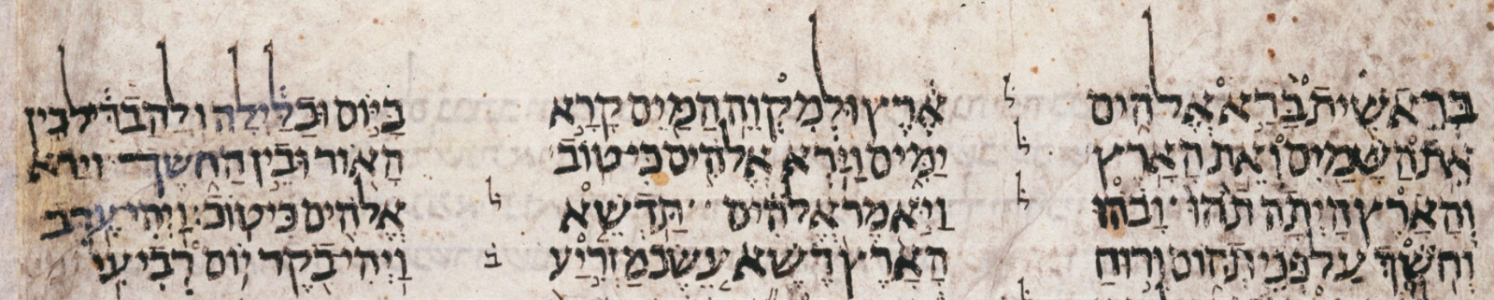 בְּרֵאשִׁית בָּרָא אֱלֹהִים
אֵת הַשָּׁמַיִם וְאֵת הָאָרֶץ
וְהָאָרֶץ הָיְתָה תֹהוּ וָבֹהוּ
וְחֹשֶׁךְ עַל פְּנֵי תְהוֹם וְרוּחַ
אֶרֶץ וּלְמִקְוֵה הַמַּיִם קָרָא
יַמִּים וַיַּרְא אֱלֹהִים כִּי טוֹב
וַיֹּאמֶר אֱלֹהִים תַּדְשֵׁא
הָאָרֶץ דֶּשֶׁא עֵשֶׂב מַזְרִיעַ
בַּיּוֹם וּבַלַּיְלָה וּלְהַבְדִּיל בֵּין
הָאוֹר וּבֵין הַחֹשֶׁךְ וַיַּרְא
אֱלֹהִים כִּי טוֹב׃ וַיְהִי עֶרֶב
וַיְהִי בֹקֶר יוֹם רְבִיעִי